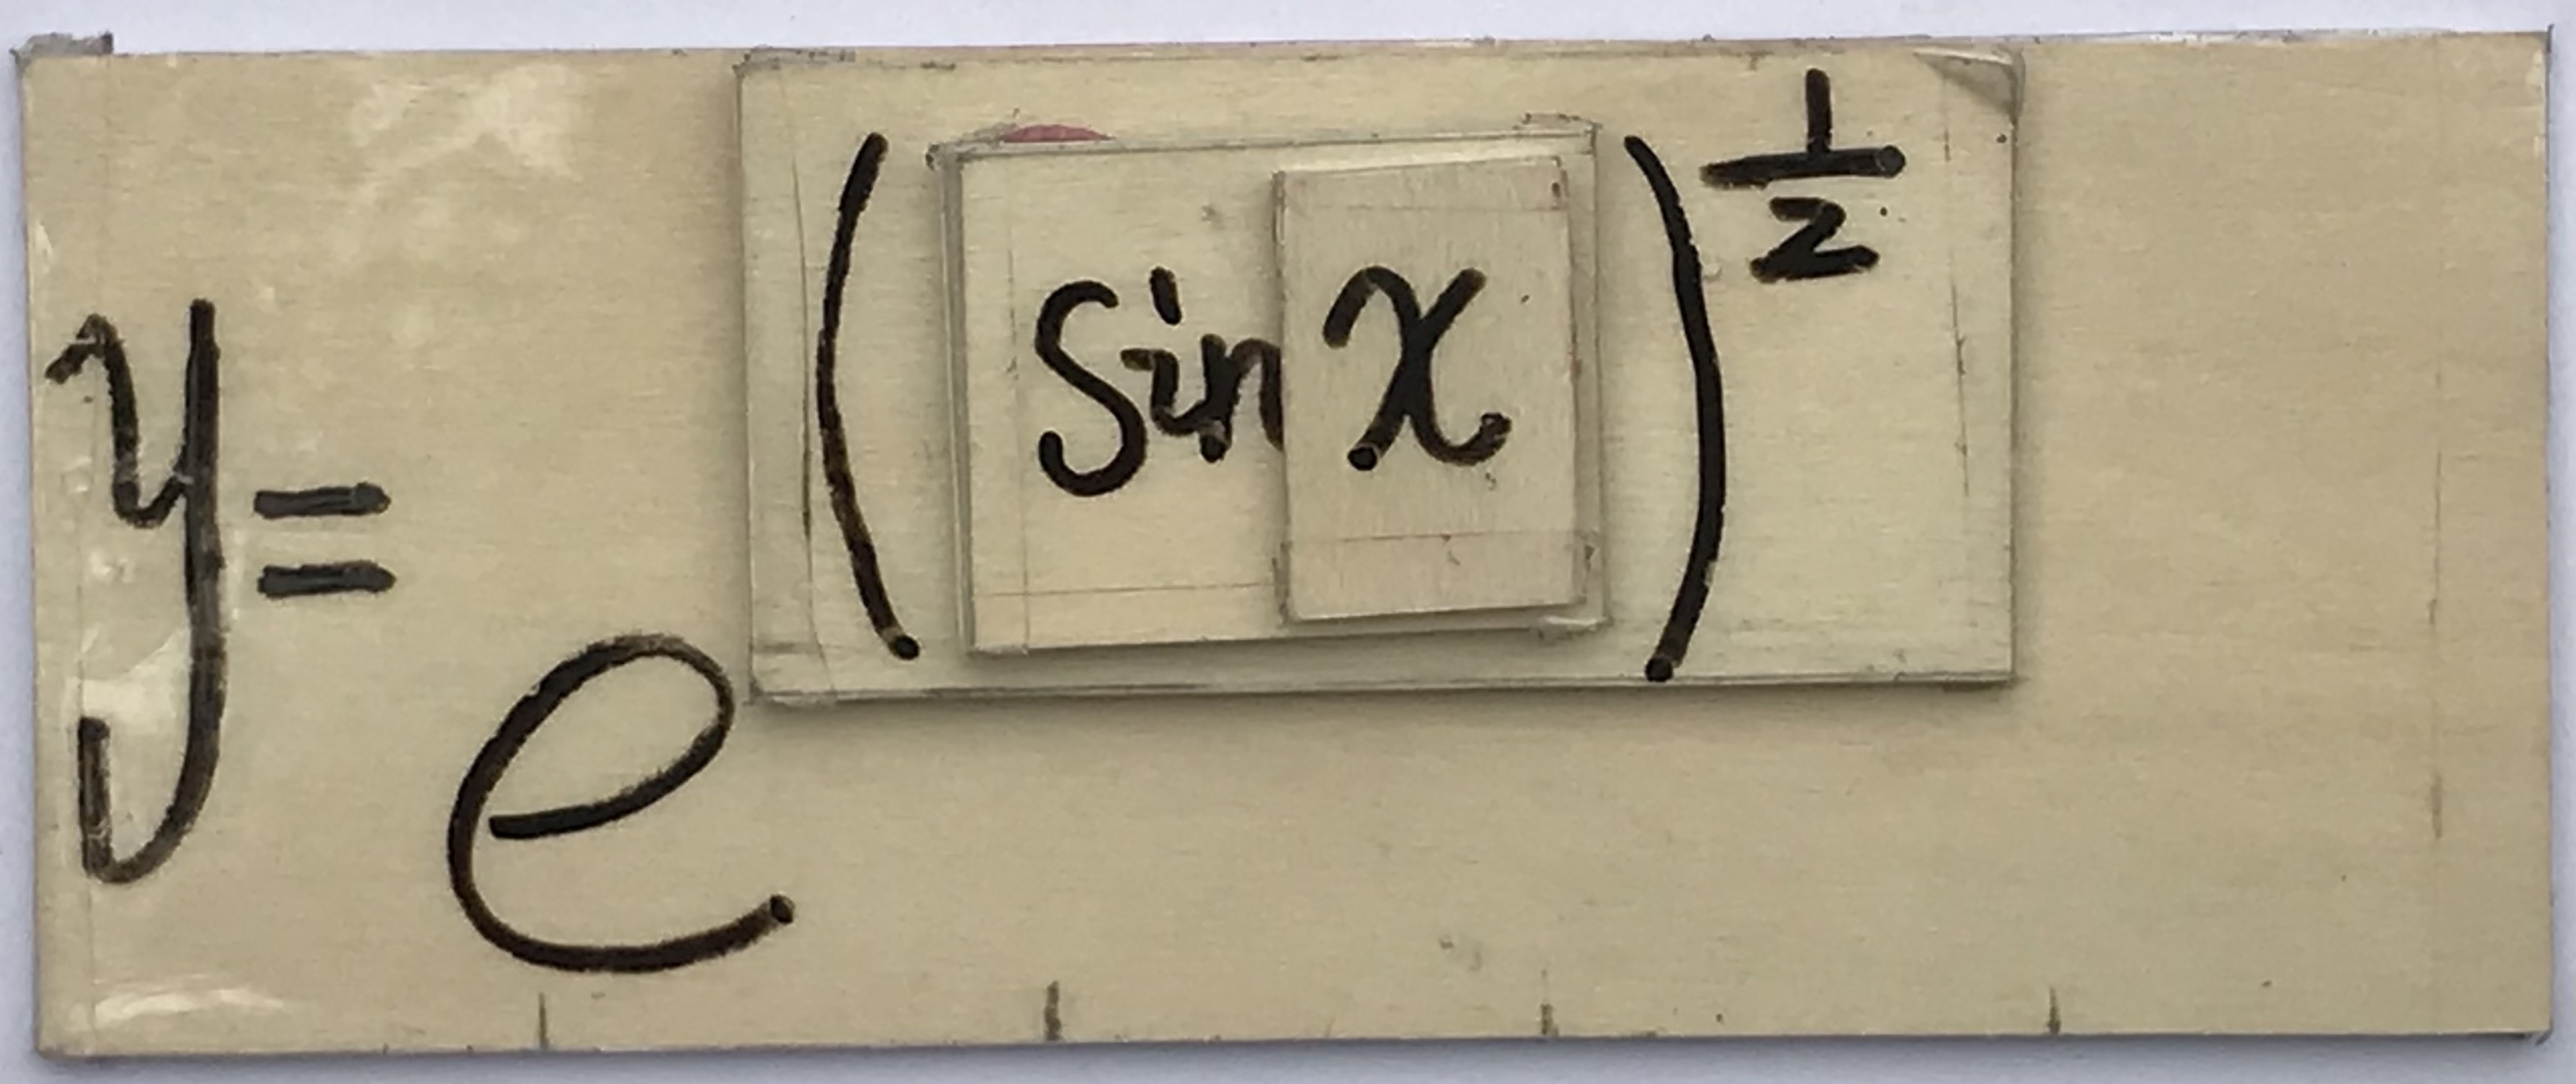 y = e^(sin x)^1/2